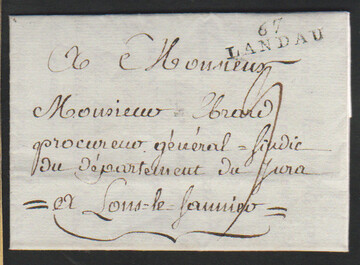 67
LANDAU
A Monsieur
Monsieur Brard
procureur général = sindic
du département du Jura
= A Lons-le-saunier =